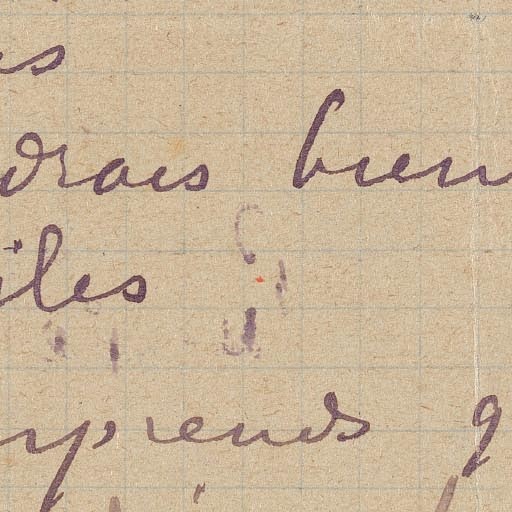 es
drais bien
iles
prends q